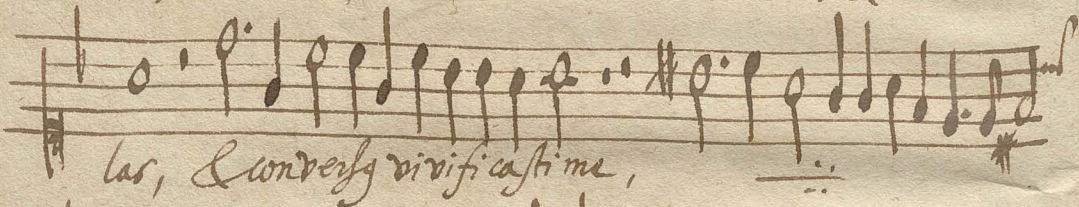 las, & conversꝯ vivificasti me,